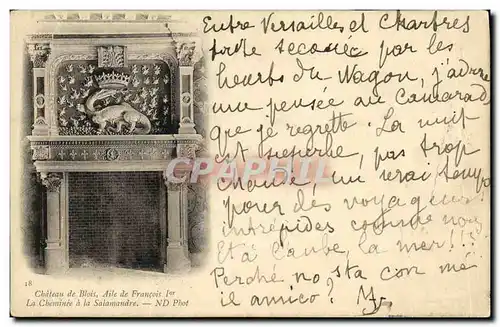 Entre Versailles et Chartres
toute secouée par les
heurts du Wagon, j'adresse
une pensée au Camarad
que je regrette. La nuit
est sereine, pas trop
chaude, un vrai temps
pour des voyageurs
intrépides comme nous
Et à l'aube, la mer!!!
Perché no sta con me
il amico?
18
Château de Blois, Aile de François Ier
La Cheminée à la Salamandre. — ND Phot
CPA-PHOTO.COM